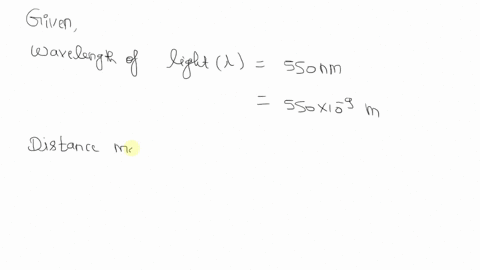 Given,
Wavelength of light (λ) = 550 nm
= 550×10⁻⁹ m
Distance m